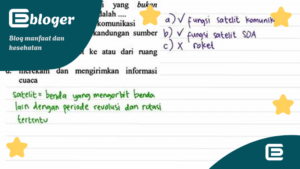 Ebloger
Blog manfaat dan
kesehatan
yang bukan
adalah ....
komunikasi
kandungan sumber
ke atau dari ruang
d. merekam dan mengirimkan informasi
cuaca
a) √ fungsi satelit komunik
b) √ fungsi satelit SDA
c) X roket
satelit = benda yang mengorbit benda
lain dengan periode revolusi dan rotasi
tertentu